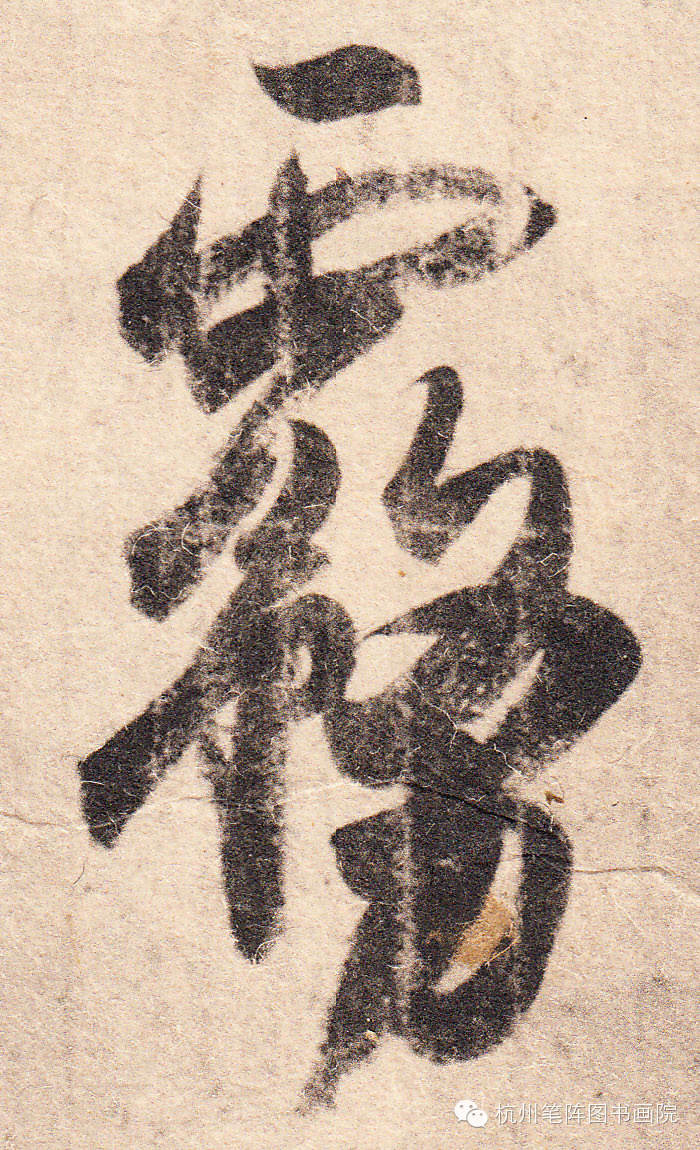 竊
杭州笔阵图书画院